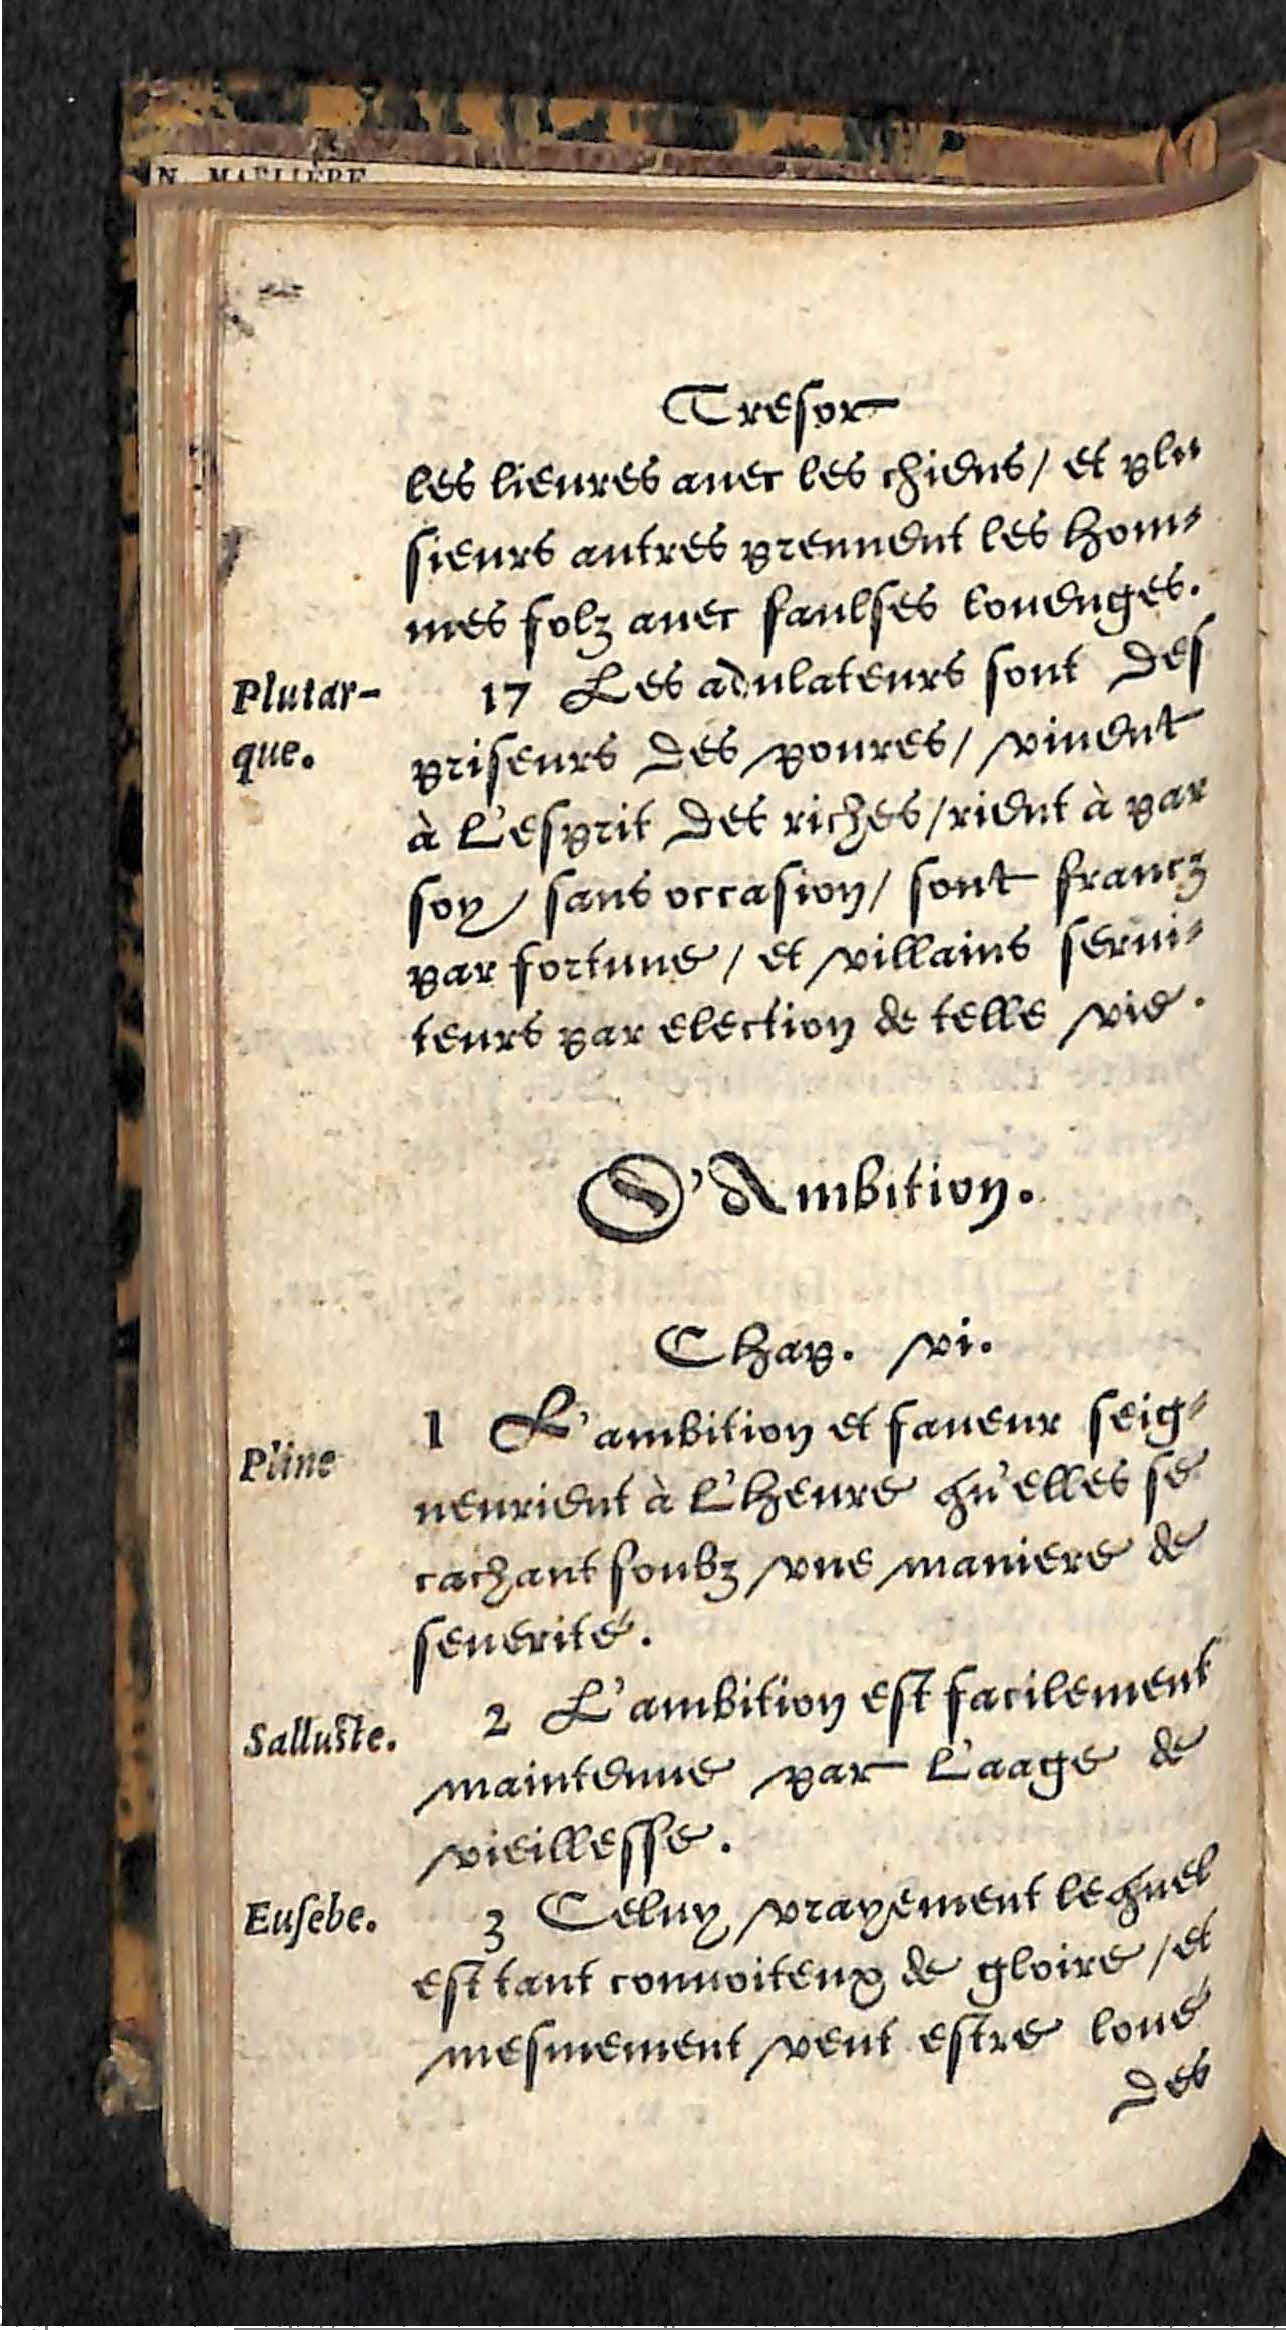 Tresor
les lieures auec les chiens/ et plu⸗
sieurs autres prennent les hom⸗
mes folz auec faulses louenges.
Plutar-
que.
17 Les adulateurs sont des
priseurs des poures/ viuent
à l'esprit des riches/ rient à par
soy/ sans occasion/ sont francz
par fortune/ et villains serui⸗
teurs par election de telle vie.
D'Ambition.
Chap. vi.
Pline
1 L'ambition et faueur seig⸗
neurient à l'heure qu'elles se
cachant soubz vne maniere de
seuerité.
Salluste.
2 L'ambition est facilement
maintenue par l'aage de
vieillesse.
Eusebe.
3 Celuy vrayement lequel
est tant conuoiteux de gloire/ et
mesmement veut estre loué
des